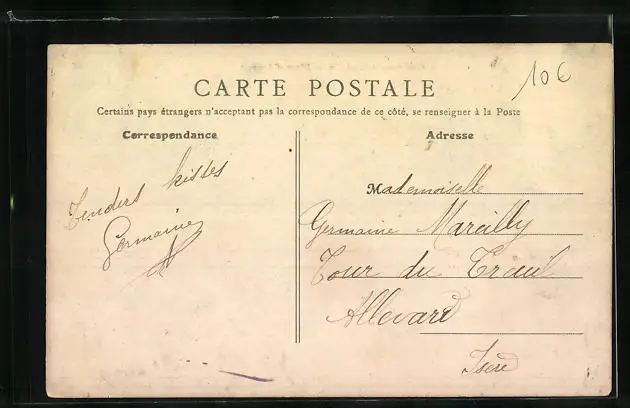 10€
CARTE POSTALE
Certains pays étrangers n'acceptant pas la correspondance de ce côté, se renseigner à la Poste
Correspondance
Adresse
Tenders kisses
Germaine
Mademoiselle
Germaine Marcilly
Tour du Treuil
Allevard
Isère